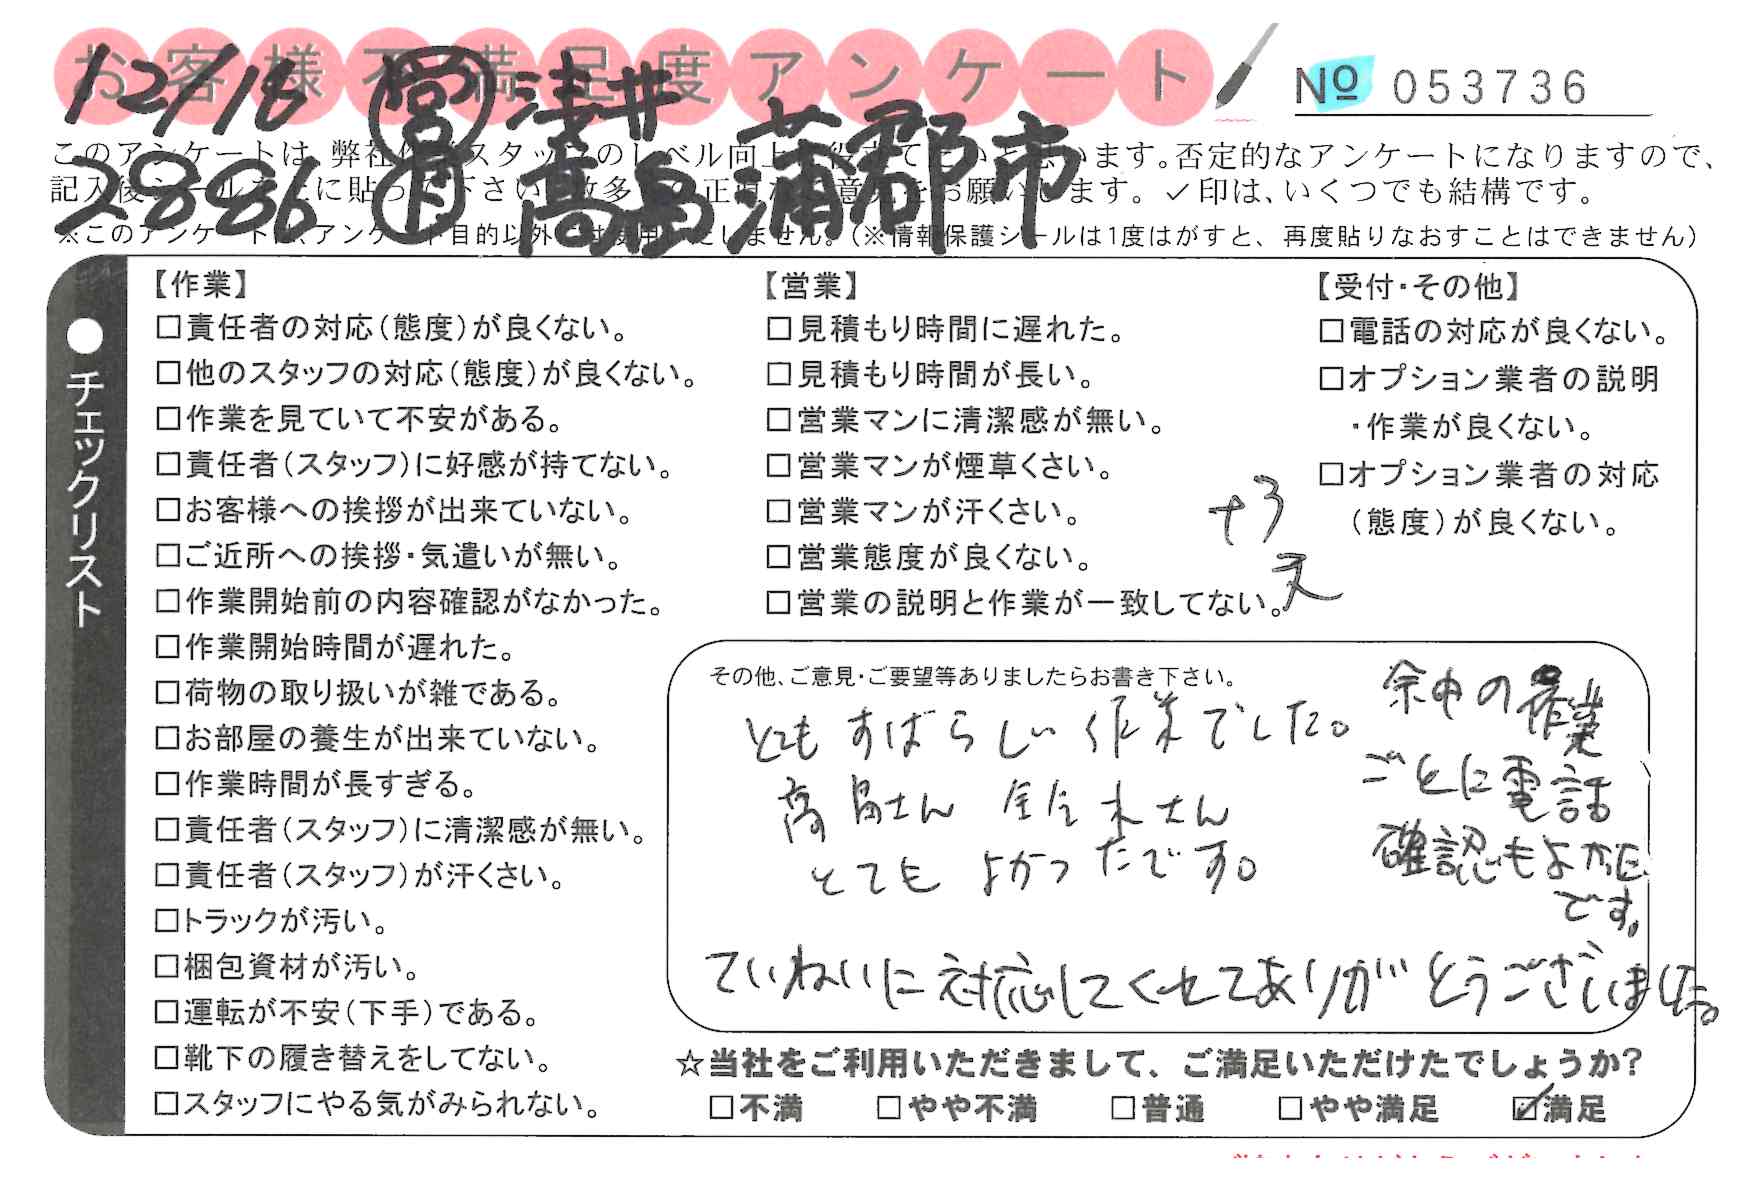 お客様不満足度アンケート
№ 053736
12/18 営 清井
2886 高畠 蒲郡市
このアンケートは、弊社スタッフのレベル向上います。否定的なアンケートになりますので、
記入後シールを上に貼って下さい。数多正直意見をお願いします。✓印は、いくつでも結構です。
※このアンケートは、アンケート目的以外には使用いたしません。(※情報保護シールは1度はがすと、再度貼りなおすことはできません)
●チェックリスト
【作業】
□責任者の対応(態度)が良くない。
□他のスタッフの対応(態度)が良くない。
□作業を見ていて不安がある。
□責任者(スタッフ)に好感が持てない。
□お客様への挨拶が出来ていない。
□ご近所への挨拶・気遣いが無い。
□作業開始前の内容確認がなかった。
□作業開始時間が遅れた。
□荷物の取り扱いが雑である。
□お部屋の養生が出来ていない。
□作業時間が長すぎる。
□責任者(スタッフ)に清潔感が無い。
□責任者(スタッフ)が汗くさい。
□トラックが汚い。
□梱包資材が汚い。
□運転が不安(下手)である。
□靴下の履き替えをしてない。
□スタッフにやる気がみられない。
【営業】
□見積もり時間に遅れた。
□見積もり時間が長い。
□営業マンに清潔感が無い。
□営業マンが煙草くさい。
□営業マンが汗くさい。
□営業態度が良くない。
□営業の説明と作業が一致してない。
+3
【受付・その他】
□電話の対応が良くない。
□オプション業者の説明
・作業が良くない。
□オプション業者の対応
(態度)が良くない。
その他、ご意見・ご要望等ありましたらお書き下さい。
とてもすばらしい作業でした。
高畠さん 鈴木さん
とてもよかったです。
の作業
ごとに電話
確認もよかった
です。
ていねいに対応してくれてありがとうございました。
☆当社をご利用いただきまして、ご満足いただけたでしょうか?
□不満 □やや不満 □普通 □やや満足 ☑満足